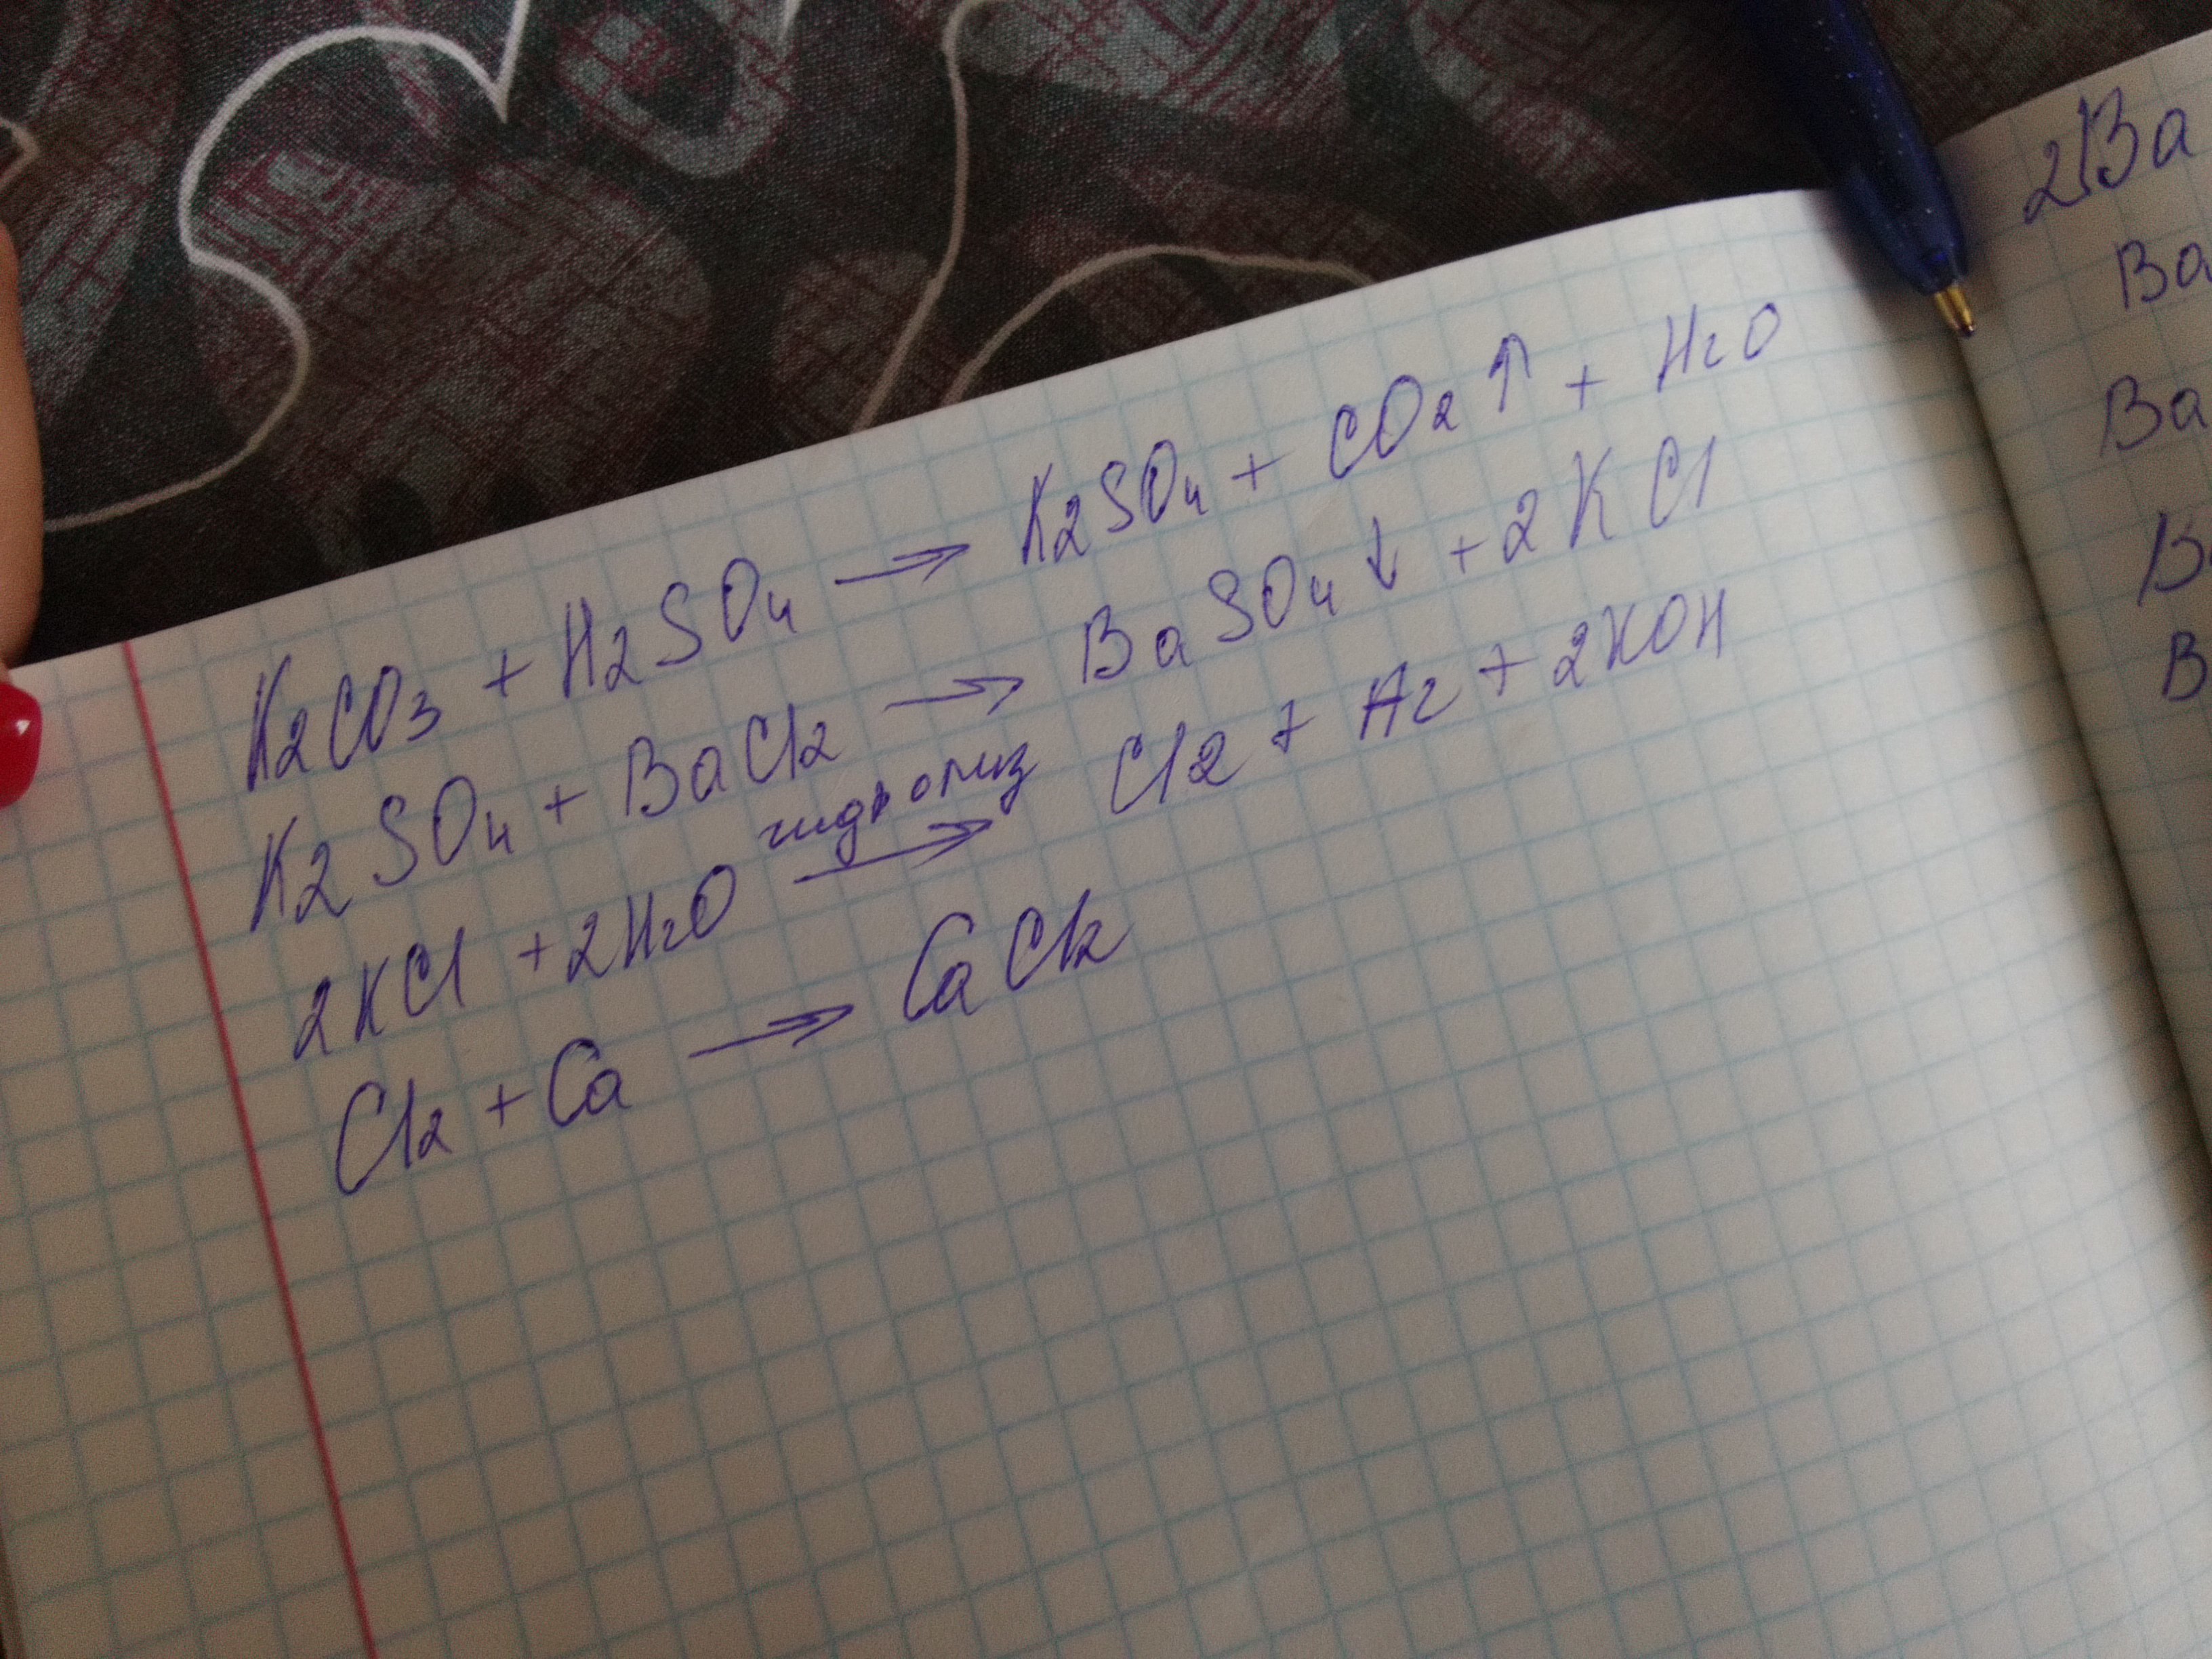 K2CO3 + H2SO4 → K2SO4 + CO2↑ + H2O
K2SO4 + BaCl2 → BaSO4↓ + 2KCl
гидролиз
2KCl + 2H2O → Cl2 + H2 + 2KOH
Cl2 + Ca → CaCl2
2Ba
Ba
Ba
B
B